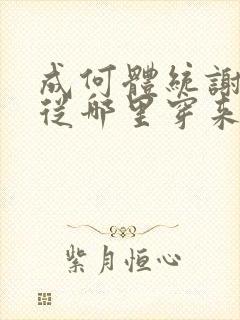 成何體統謝
從哪里穿來
紫月恒心